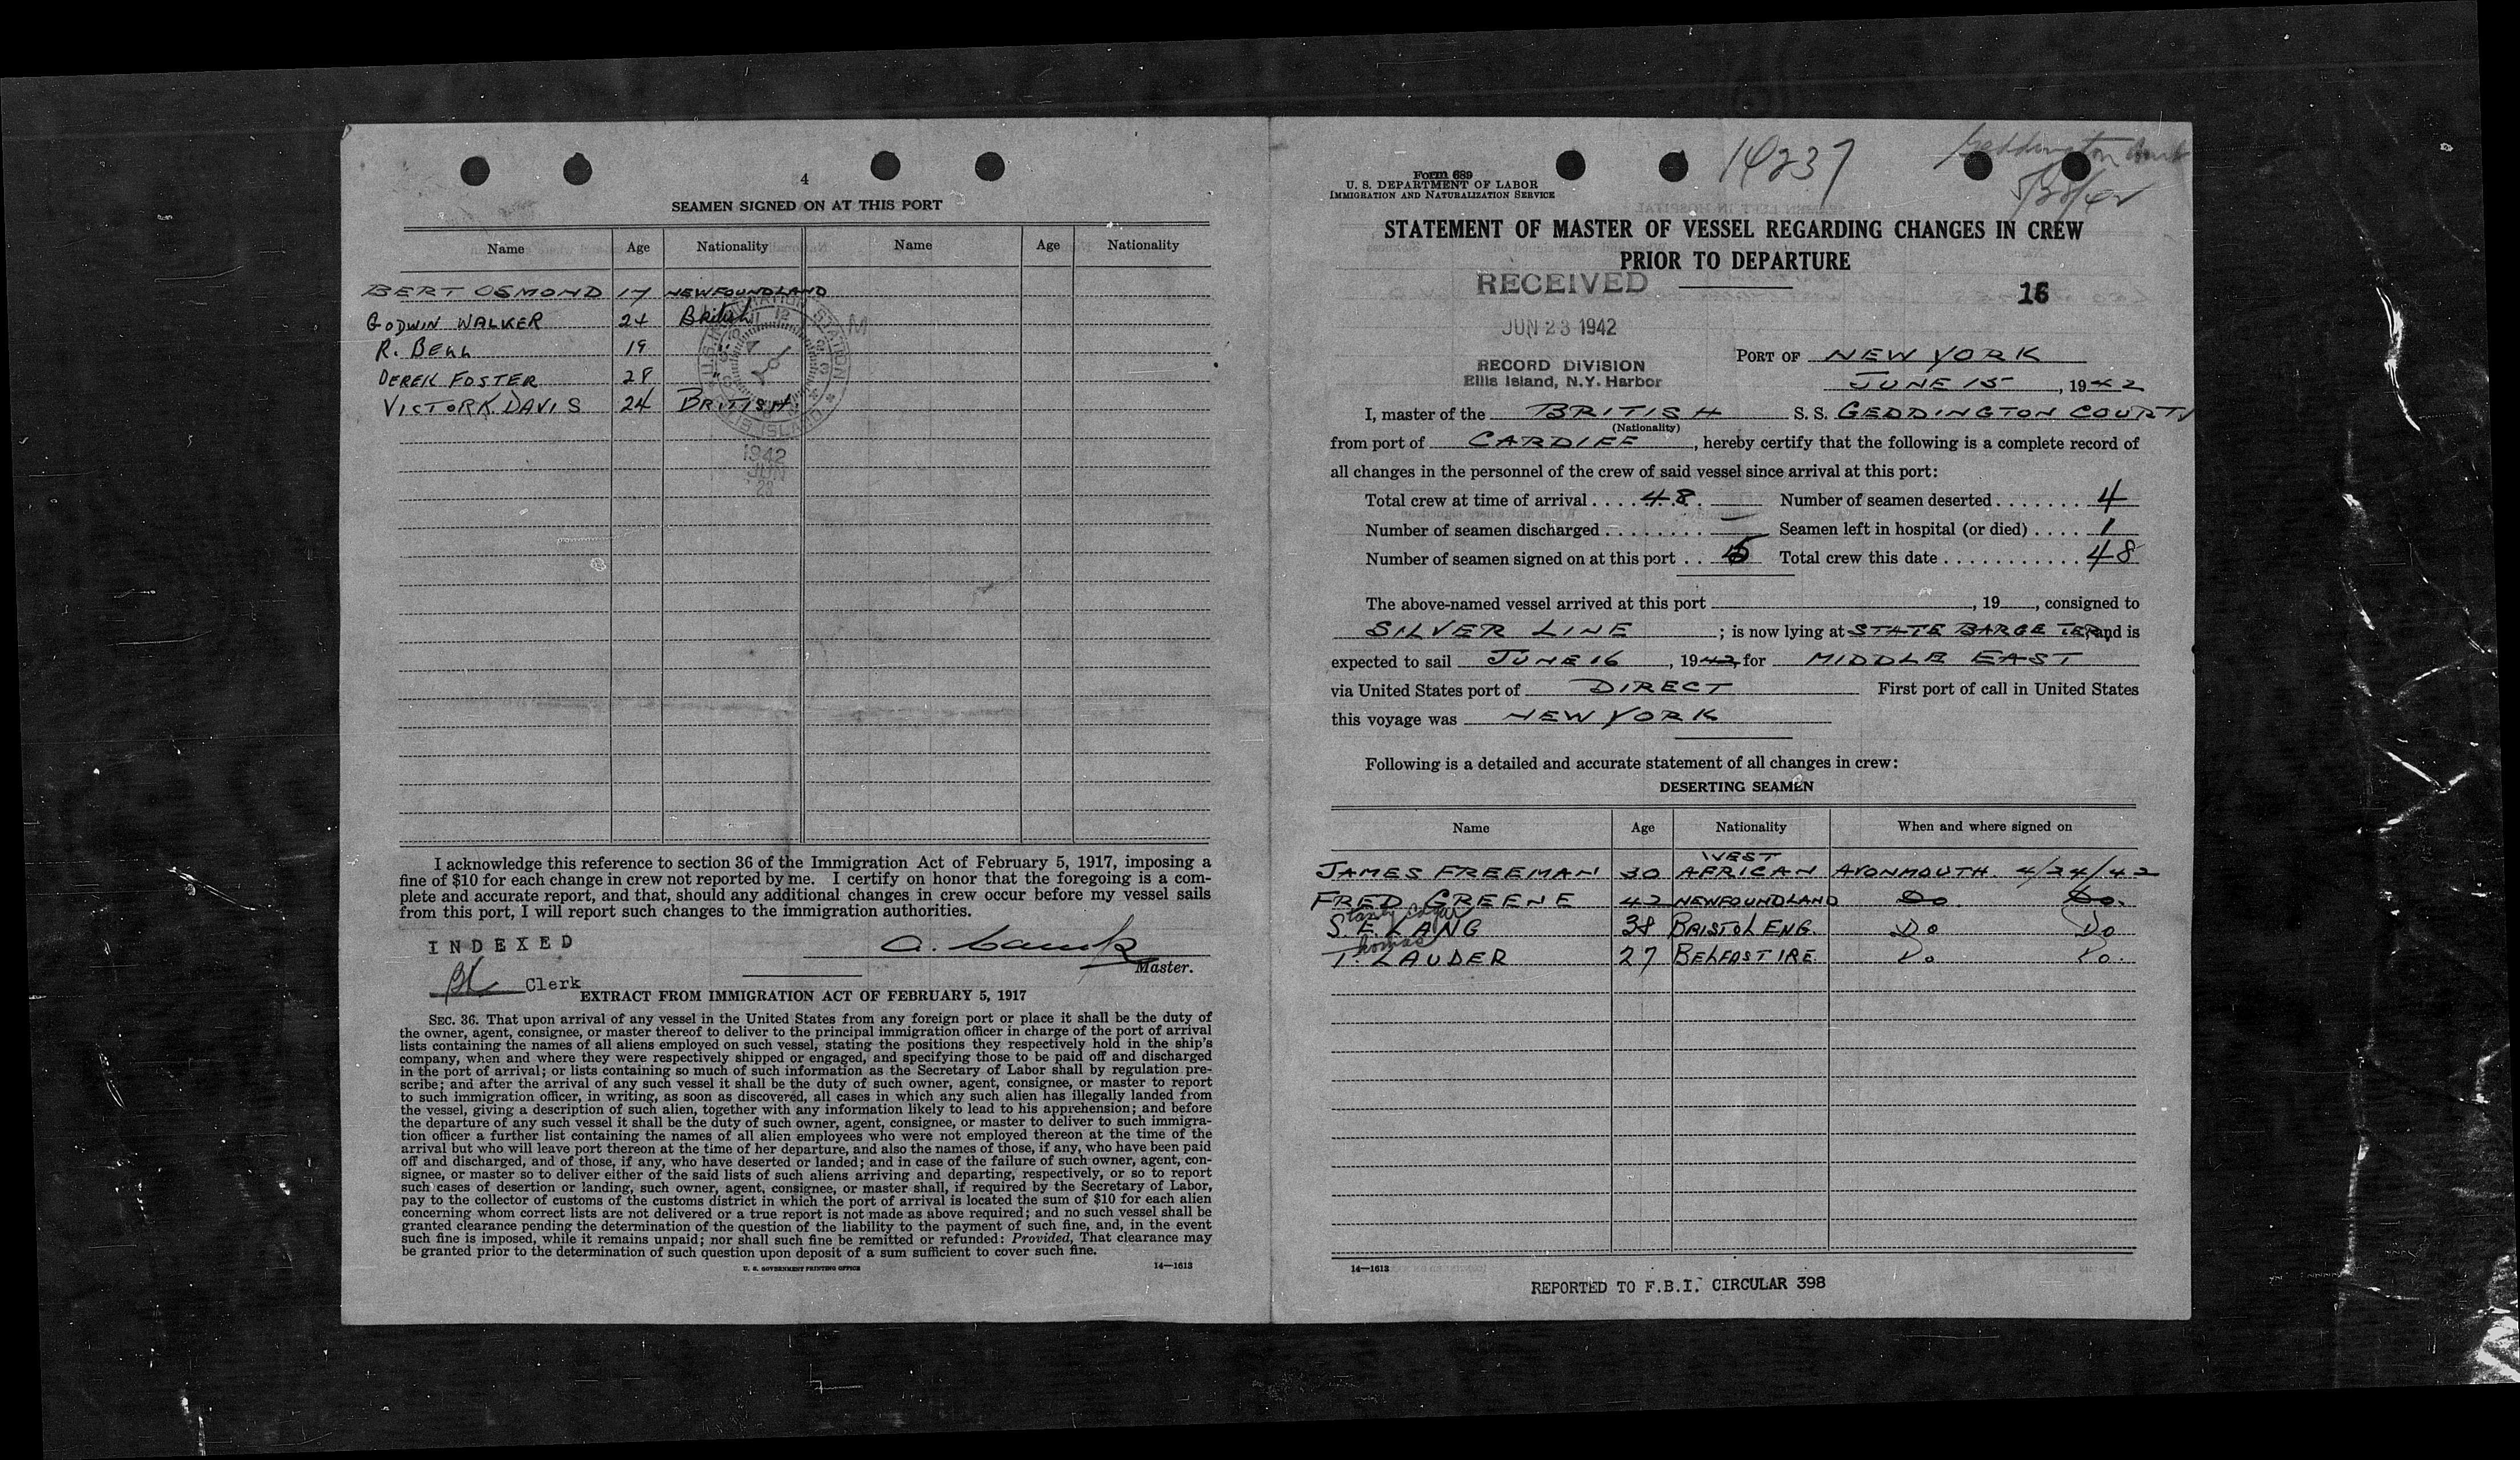 4
SEAMEN SIGNED ON AT THIS PORT
Name Age Nationality Name Age Nationality
BERT OSMOND 17 NEWFOUNDLAND
GODWIN WALKER 24 British
R. BELL 19 "
DEREK FOSTER 28 "
VICTOR K. DAVIS 24 BRITISH
1942
JUN
23
I acknowledge this reference to section 36 of the Immigration Act of February 5, 1917, imposing a
fine of $10 for each change in crew not reported by me. I certify on honor that the foregoing is a com-
plete and accurate report, and that, should any additional changes in crew occur before my vessel sails
from this port, I will report such changes to the immigration authorities.
INDEXED
Master.
Clerk
EXTRACT FROM IMMIGRATION ACT OF FEBRUARY 5, 1917
SEC. 36. That upon arrival of any vessel in the United States from any foreign port or place it shall be the duty of
the owner, agent, consignee, or master thereof to deliver to the principal immigration officer in charge of the port of arrival
lists containing the names of all aliens employed on such vessel, stating the positions they respectively hold in the ship's
company, when and where they were respectively shipped or engaged, and specifying those to be paid off and discharged
in the port of arrival; or lists containing so much of such information as the Secretary of Labor shall by regulation pre-
scribe; and after the arrival of any such vessel it shall be the duty of such owner, agent, consignee, or master to report
to such immigration officer, in writing, as soon as discovered, all cases in which any such alien has illegally landed from
the vessel, giving a description of such alien, together with any information likely to lead to his apprehension; and before
the departure of any such vessel it shall be the duty of such owner, agent, consignee, or master to deliver to such immigra-
tion officer a further list containing the names of all alien employees who were not employed thereon at the time of the
arrival but who will leave port thereon at the time of her departure, and also the names of those, if any, who have been paid
off and discharged, and of those, if any, who have deserted or landed; and in case of the failure of such owner, agent, con-
signee, or master so to deliver either of the said lists of such aliens arriving and departing, respectively, or so to report
such cases of desertion or landing, such owner, agent, consignee, or master shall, if required by the Secretary of Labor,
pay to the collector of customs of the customs district in which the port of arrival is located the sum of $10 for each alien
concerning whom correct lists are not delivered or a true report is not made as above required; and no such vessel shall be
granted clearance pending the determination of the question of the liability to the payment of such fine, and, in the event
such fine is imposed, while it remains unpaid; nor shall such fine be remitted or refunded: Provided, That clearance may
be granted prior to the determination of such question upon deposit of a sum sufficient to cover such fine.
U. S. GOVERNMENT PRINTING OFFICE 14—1613
Form 689
U. S. DEPARTMENT OF LABOR
IMMIGRATION AND NATURALIZATION SERVICE
14237
Geddington Court
5/28/42
STATEMENT OF MASTER OF VESSEL REGARDING CHANGES IN CREW
PRIOR TO DEPARTURE
RECEIVED
16
JUN 23 1942
RECORD DIVISION
Ellis Island, N.Y. Harbor
PORT OF NEW YORK
JUNE 15, 1942
I, master of the BRITISH S. S. GEDDINGTON COURT
(Nationality)
from port of CARDIFF, hereby certify that the following is a complete record of
all changes in the personnel of the crew of said vessel since arrival at this port:
Total crew at time of arrival .... 48. Number of seamen deserted ....... 4
Number of seamen discharged ........ — Seamen left in hospital (or died) .... 1
Number of seamen signed on at this port .. 5 Total crew this date ............ 48
The above-named vessel arrived at this port , 19 , consigned to
SILVER LINE ; is now lying at STATE BARGE TER, and is
expected to sail JUNE 16, 1942, for MIDDLE EAST
via United States port of DIRECT First port of call in United States
this voyage was NEW YORK
Following is a detailed and accurate statement of all changes in crew:
DESERTING SEAMEN
Name Age Nationality When and where signed on
WEST
JAMES FREEMAN 30 AFRICAN AVONMOUTH 4/24/42
FRED GREENE 42 NEWFOUNDLAND Do Do.
S. E. LANG 38 BRISTOL ENG. Do Do
Thomas
T. LAUDER 27 BELFAST IRE. Do Do.
14—1613
REPORTED TO F.B.I. CIRCULAR 398